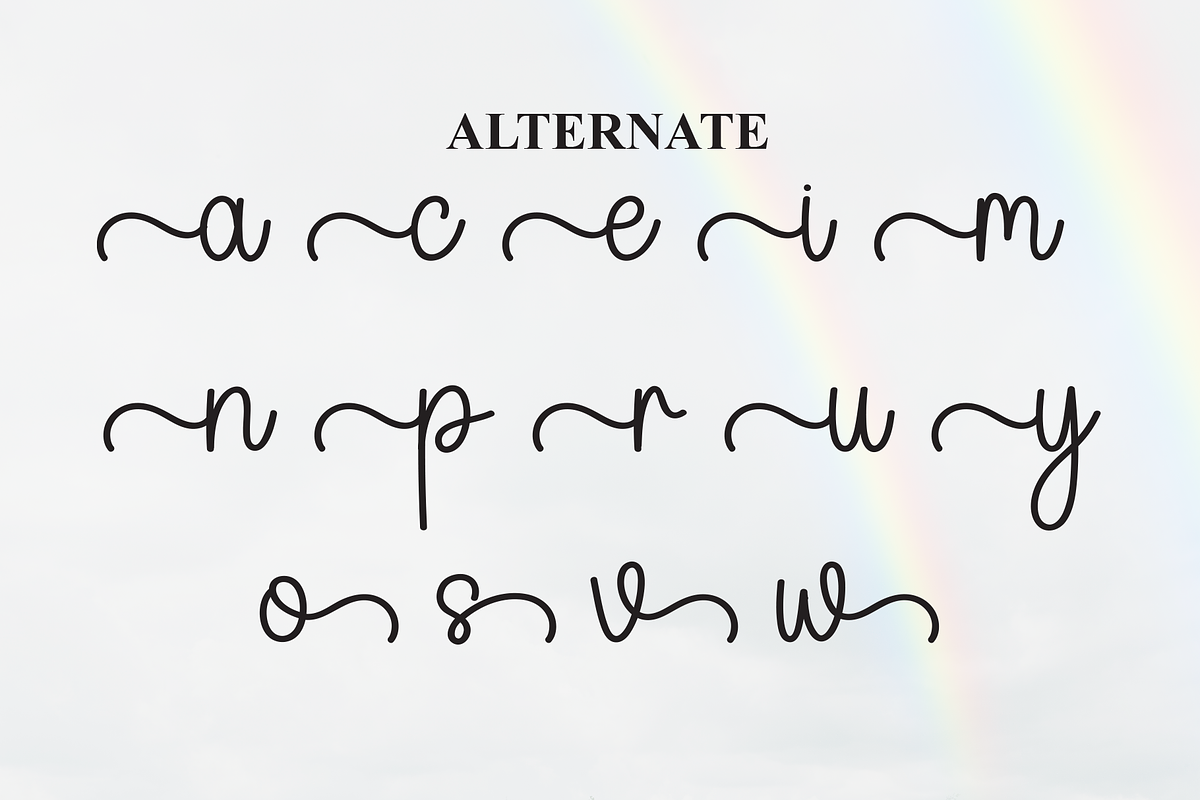 ALTERNATE
a c e i m
n p r u y
o s v w